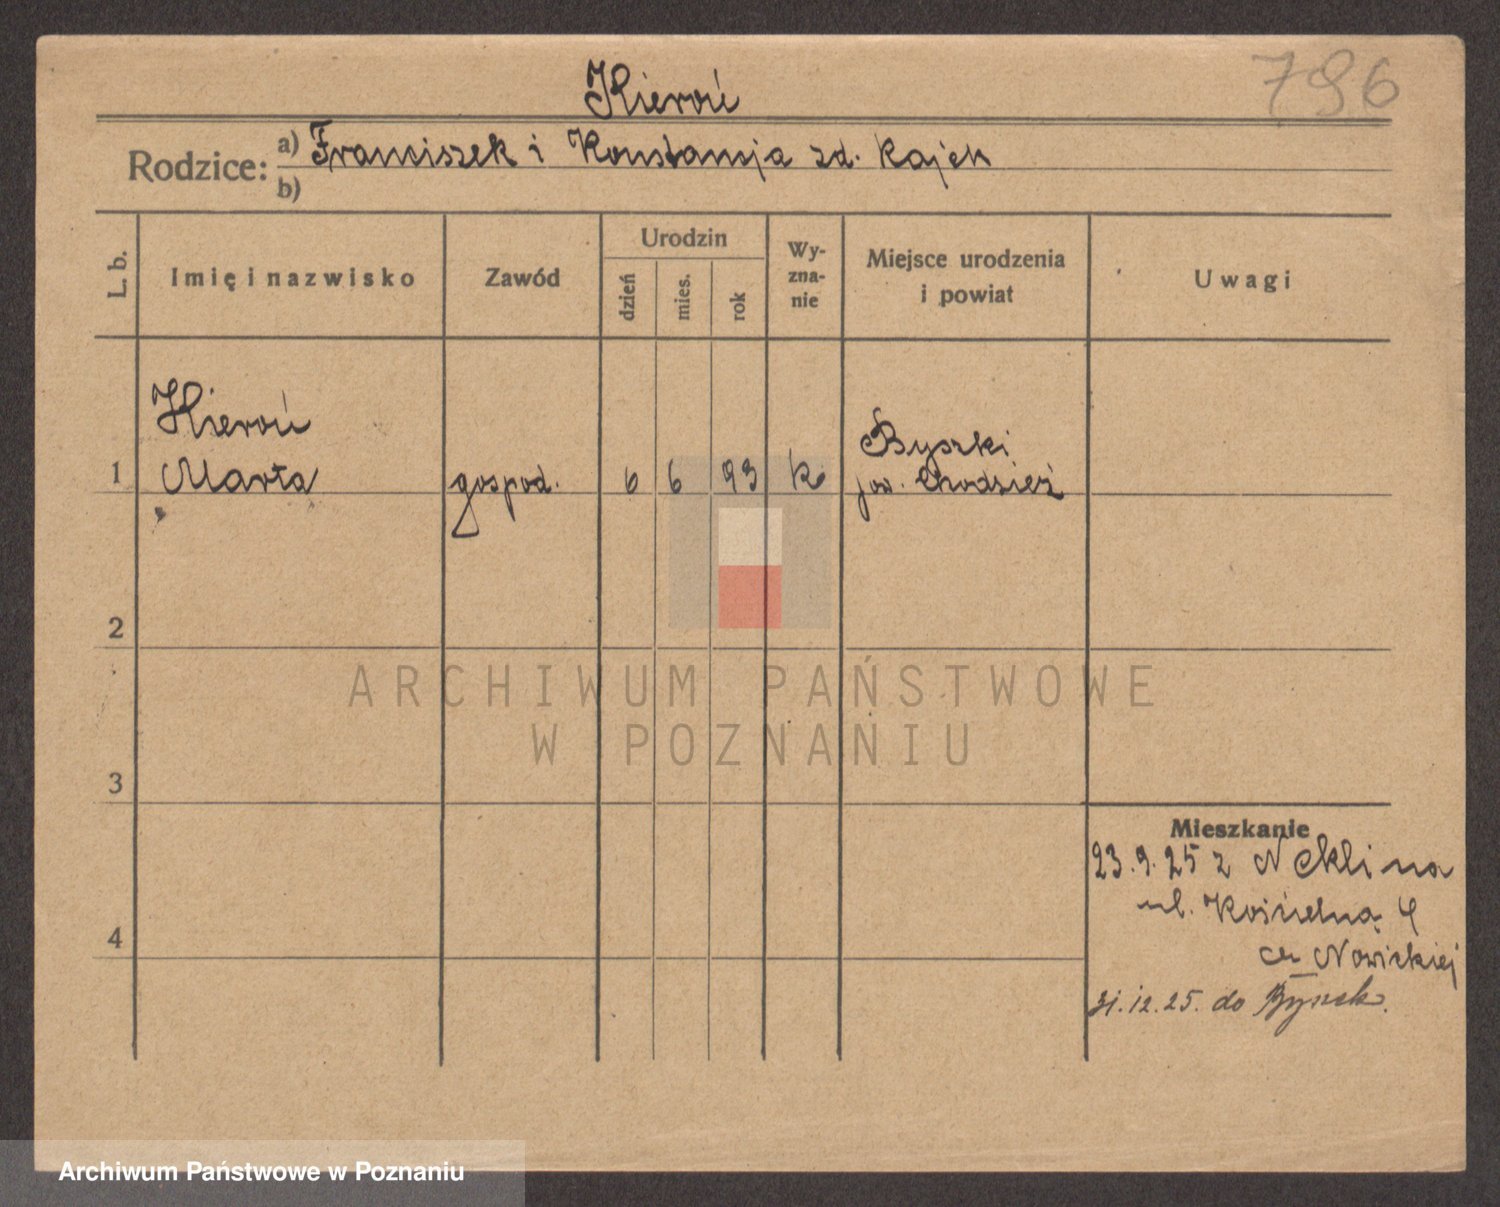 796
Hieroń
Rodzice: a) Franciszek i Konstancja zd. Kajek
b)
L. b. Imię i nazwisko Zawód Urodzin dzień mies. rok Wyznanie Miejsce urodzenia i powiat Uwagi
Hieroń Byszki
1 Marta gospod. 6 6 93 k pow. Chodzież
2
ARCHIWUM PAŃSTWOWE
W POZNANIU
3
Mieszkanie
23.9.25 z Neklina
ul. Kościelna 4
Nowickiej
4
31.12.25. do Byszek.
Archiwum Państwowe w Poznaniu